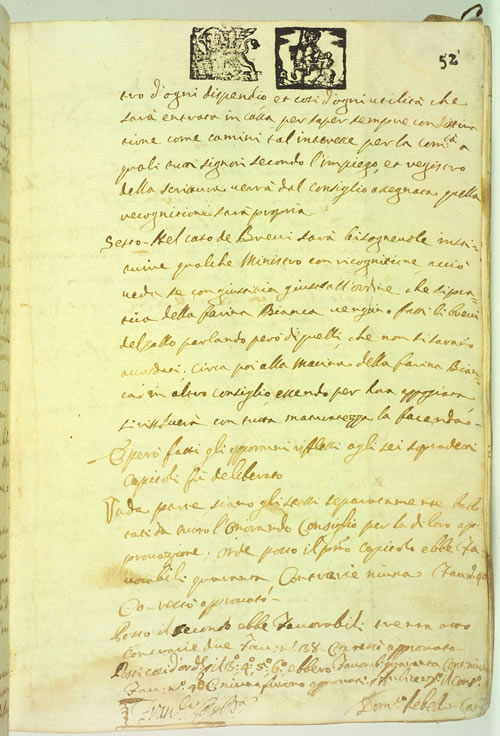 52
tro d'ogni dispendio et così d'ogni utilità che
sarà entrata in cassa per saper sempre con
come camini tal interesse per la
quali suoi signori secondo l'impiego, et registro
della scrittura verrà dal Consiglio assegnata quella
recognitione sarà propria
Sesto - Nel caso de Brevi sarà bisognevole insti-
tuire qualche Ministro con ricognitione acciò
veda se con giustitia giusta all'ordine, che
della farina Bianca venghino fatti li brevi
del parlando però di quelli, che non si saran
accordati. Circa poi alla Macina della farina Bian-
ca in altro consiglio essendo per hora appogiata
si risolverà con tutta maturatezza la facenda -
E però fatti gli opportuni riflessi agli sei sopradetti
Capitoli fù deliberato
Vada parte siano gli stessi separatamente ballo-
tati da tutto l'Honorando Consiglio per la di loro ap-
provatione. Onde posto il primo capitolo ebbe Fa-
vorabili quaranta Contrarie niuna
Co. restò approvato -
Posto il secondo ebbe Favorabili trenta otto
contrarie due Fau: n.º 38. Con: restò approvato
Posti così d'ordine il 3º 4º 5º 6º ebbero Favorabili quaranta Cont: niuna
Fau: nº 40 C niuna furono approvati